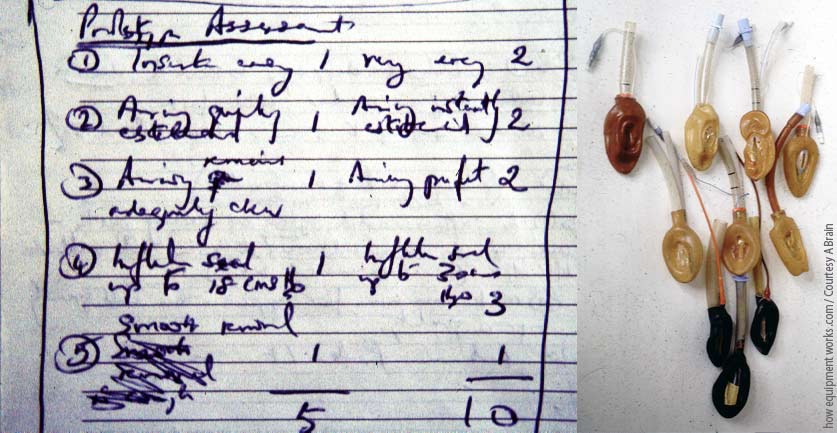 Prototype Assessment
① Insertion easy 1 very easy 2
② Airway quickly 1 Airway instantly 2
established established
③ Airway remains 1 Airway perfect 2
adequately clear
④ Inflation seal 1 Inflation seal
up to 18 cms H2O up to 30 cms
H2O 3
Smooth removal
⑤ 1 1
5 10
how equipment works.com / Courtesy A Brain